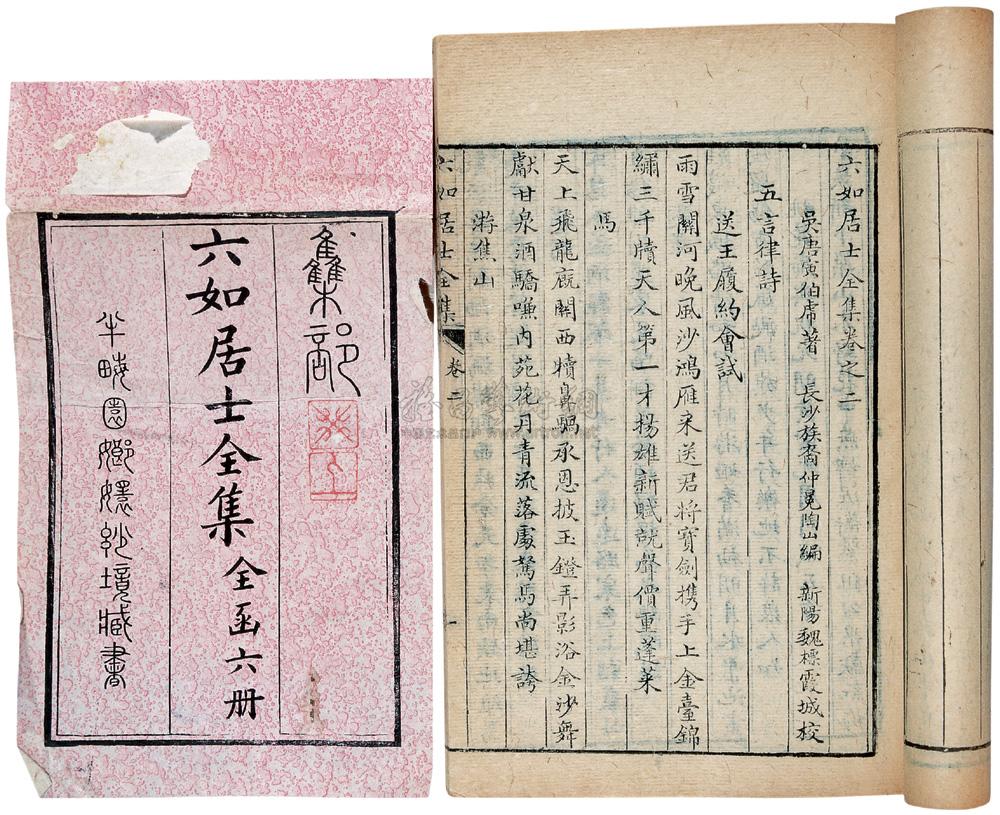 六如居士全集卷之二
吳唐寅伯虎著 長沙族裔仲冕陶山編 新陽魏標霞城校
五言律詩
送王履約會試
雨雪關河晚風沙鴻雁来送君將寶劍携手上金臺錦
繡三千牘天人第一才揚雄新賦就聲價重蓬萊
馬
天上飛龍廐關西犢鼻騧承恩披玉鐙弄影浴金沙舞
獻甘泉酒驕嘶内苑花丹青流落處駑馬尚堪誇
游焦山
六如居士全集 卷二
集部
六如居士全集 全函六册
半畮園嫏嬛妙境藏書